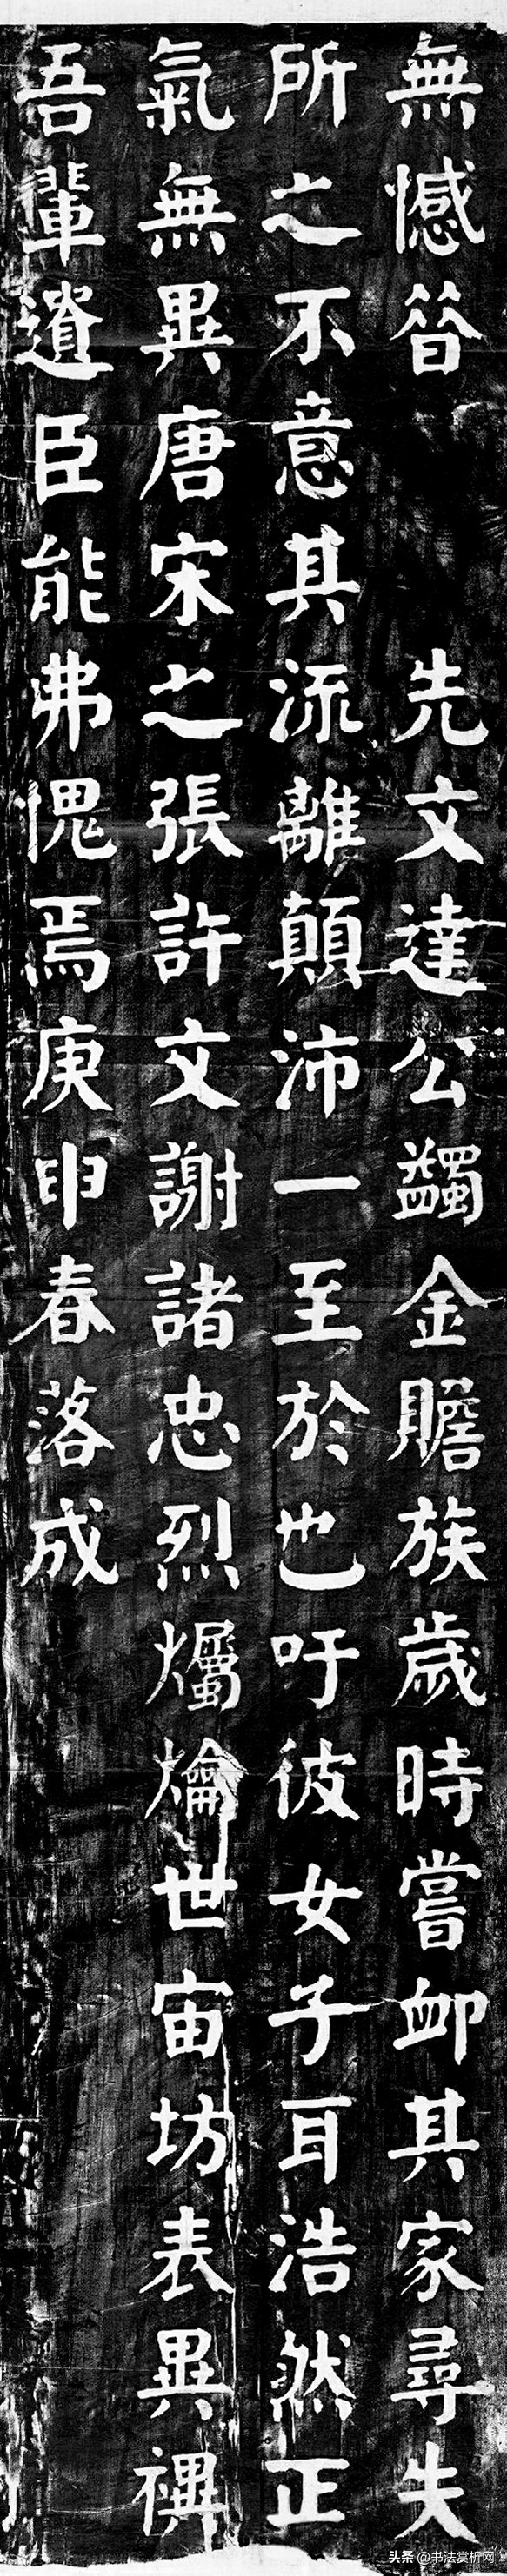 無憾昝先文達公蠲金贍族歲時嘗卹其家尋失
所之不意其流離顛沛一至於也吁彼女子耳浩然正
氣無異唐宋之張許文謝諸忠烈爥爚世宙坊表異禩
吾輩遺臣能弗愧焉庚申春落成
头条 @书法赏析网